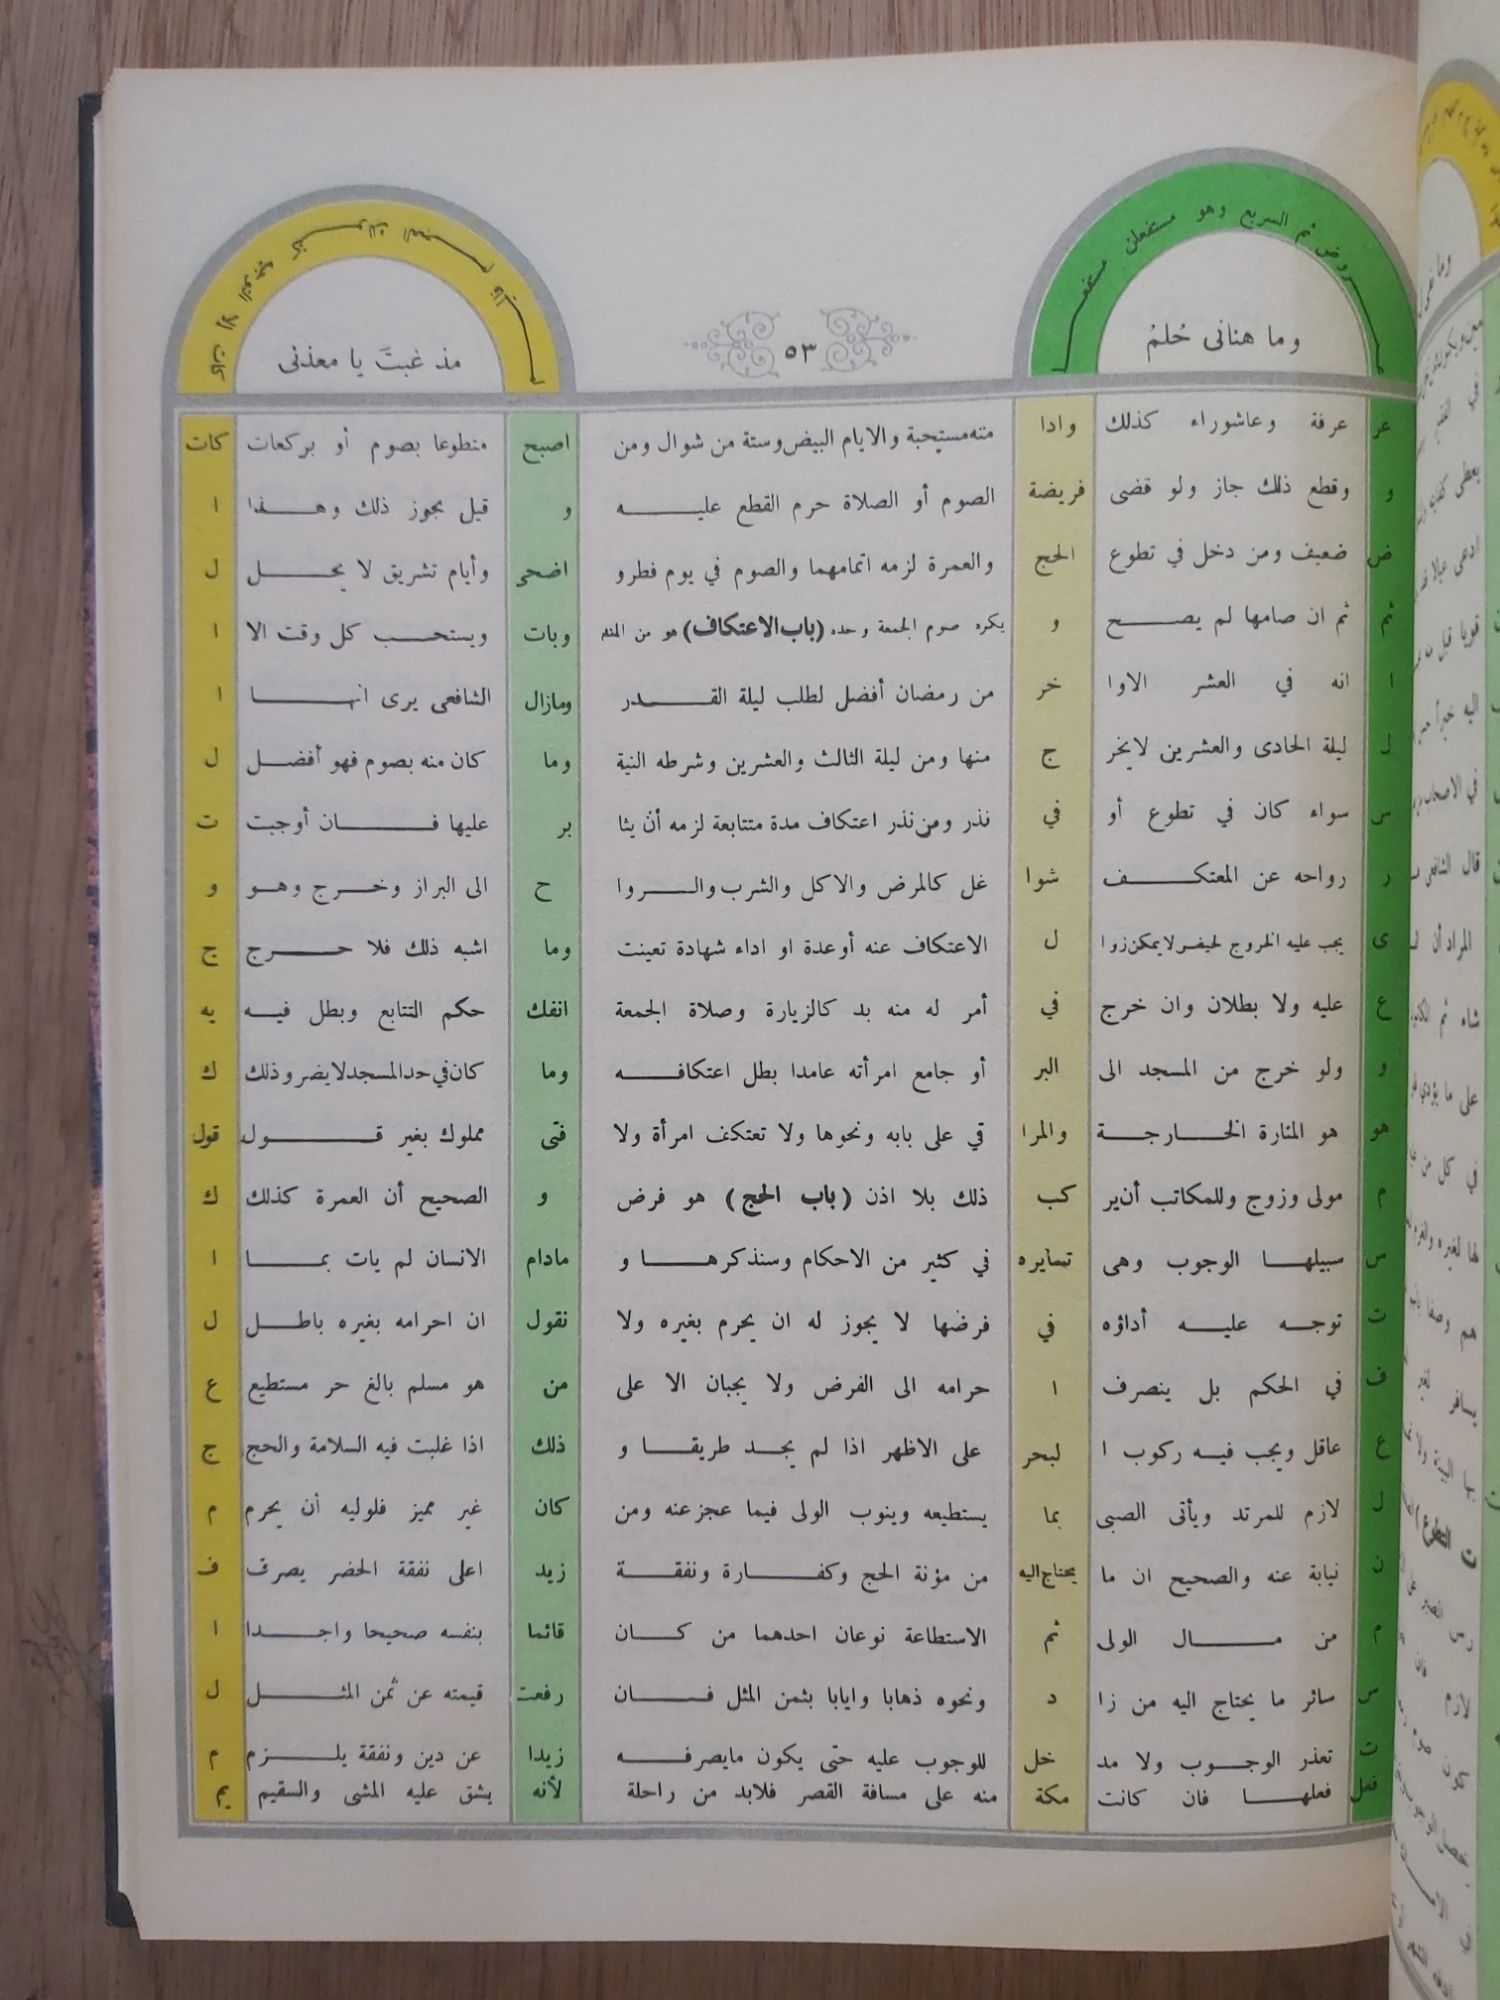 عروض ثم السريع وهو مستفعلن مستفعـ
وما هنانى حُلمُ
٥٣
مذ غبتَ يا معذبى
عر عرفة وعاشوراء كذلك واذا منه مستحبة والايام البيض وستة من شوال ومن اصبح متطوعا بصوم أو بركعات كات
و وقطع ذلك جاز ولو قضى فريضة الصوم أو الصلاة حرم القطع عليه و قيل يجوز ذلك وهذا ا
ض ضعيف ومن دخل في تطوع الحج والعمرة لزمه اتمامهما والصوم في يوم فطرو اضحى وأيام تشريق لا يحل ل
ثم ثم ان صامها لم يصح و يكره صوم الجمعة وحده (باب الاعتكاف) هو من وبات ويستحب كل وقت الا ا
ا انه في العشر الاوا خر من رمضان أفضل لطلب ليلة القدر ومازال الشافعى يرى انها ا
ل ليلة الحادى والعشرين لايخر ج منها ومن ليلة الثالث والعشرين وشرطه النية وما كان منه بصوم فهو أفضل ل
س سواء كان في تطوع أو في نذر ومن نذر اعتكاف مدة متتابعة لزمه أن يثا بر عليها فان أوجبت ت
ر رواحه عن المعتكف شوا غل كالمرض والاكل والشرب والروا ح الى البراز وخرج وهو و
ى يجب عليه الخروج لحيض لايمكن زوا ل الاعتكاف عنه أوعدة او اداء شهادة تعينت وما اشبه ذلك فلا حرج ج
ع عليه ولا بطلان وان خرج في أمر له منه بد كالزيارة وصلاة الجمعة انفك حكم التتابع وبطل فيه يه
و ولو خرج من المسجد الى البر أو جامع امرأته عامدا بطل اعتكافه وما كان في حد المسجد لايضر وذلك ك
هو هو المنارة الخارجة والمرا قي على بابه ونحوها ولا تعتكف امرأة ولا فتى مملوك بغير قول قول
م مولى وزوج وللمكاتب أن ير كب ذلك بلا اذن (باب الحج) هو فرض و الصحيح أن العمرة كذلك ك
س سبيلها الوجوب وهى تسايره في كثير من الاحكام وسنذكرها و مادام الانسان لم يات بما ا
ت توجه عليه أداؤه في فرضها لا يجوز له ان يحرم بغيره ولا نقول ان احرامه بغيره باطل ل
ف في الحكم بل ينصرف ا حرامه الى الفرض ولا يجبان الا على من هو مسلم بالغ حر مستطيع ع
ع عاقل ويجب فيه ركوب ا لبحر على الاظهر اذا لم يجد طريقا و ذلك اذا غلبت فيه السلامة والحج ج
ل لازم للمرتد ويأتى الصبى بما يستطيعه وينوب الولى فيما عجز عنه ومن كان غير مميز فلوليه أن يحرم م
ن نيابة عنه والصحيح ان ما يحتاج اليه من مؤنة الحج وكفارة ونفقة زيد اعلى نفقة الحضر يصرف ف
م من مال الولى ثم الاستطاعة نوعان احدهما من كان قائما بنفسه صحيحا واجدا ا
س سائر ما يحتاج اليه من زا د ونحوه ذهابا وايابا بثمن المثل فان رفعت قيمته عن ثمن المثل ل
ت تعذر الوجوب ولا مد خل للوجوب عليه حتى يكون مايصرفه زيدا عن دين ونفقة يلزم م
فعل فعلها فان كانت مكة منه على مسافة القصر فلابد من راحلة لأنه يشق عليه المشى والسقيم يم